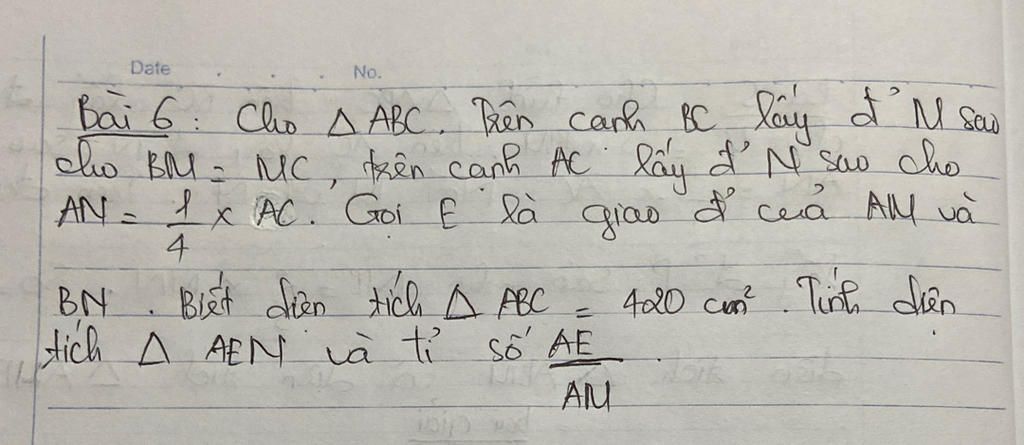 Date . . . No.
Bài 6 : Cho △ ABC. Trên cạnh BC lấy đ' M sao
cho BM = MC, trên cạnh AC lấy đ' N sao cho
AN = 1/4 x AC. Gọi E là giao đ' của AM và
BN. Biết diện tích △ ABC = 420 cm². Tính diện
tích △ AEN và tỉ số AE/AM.